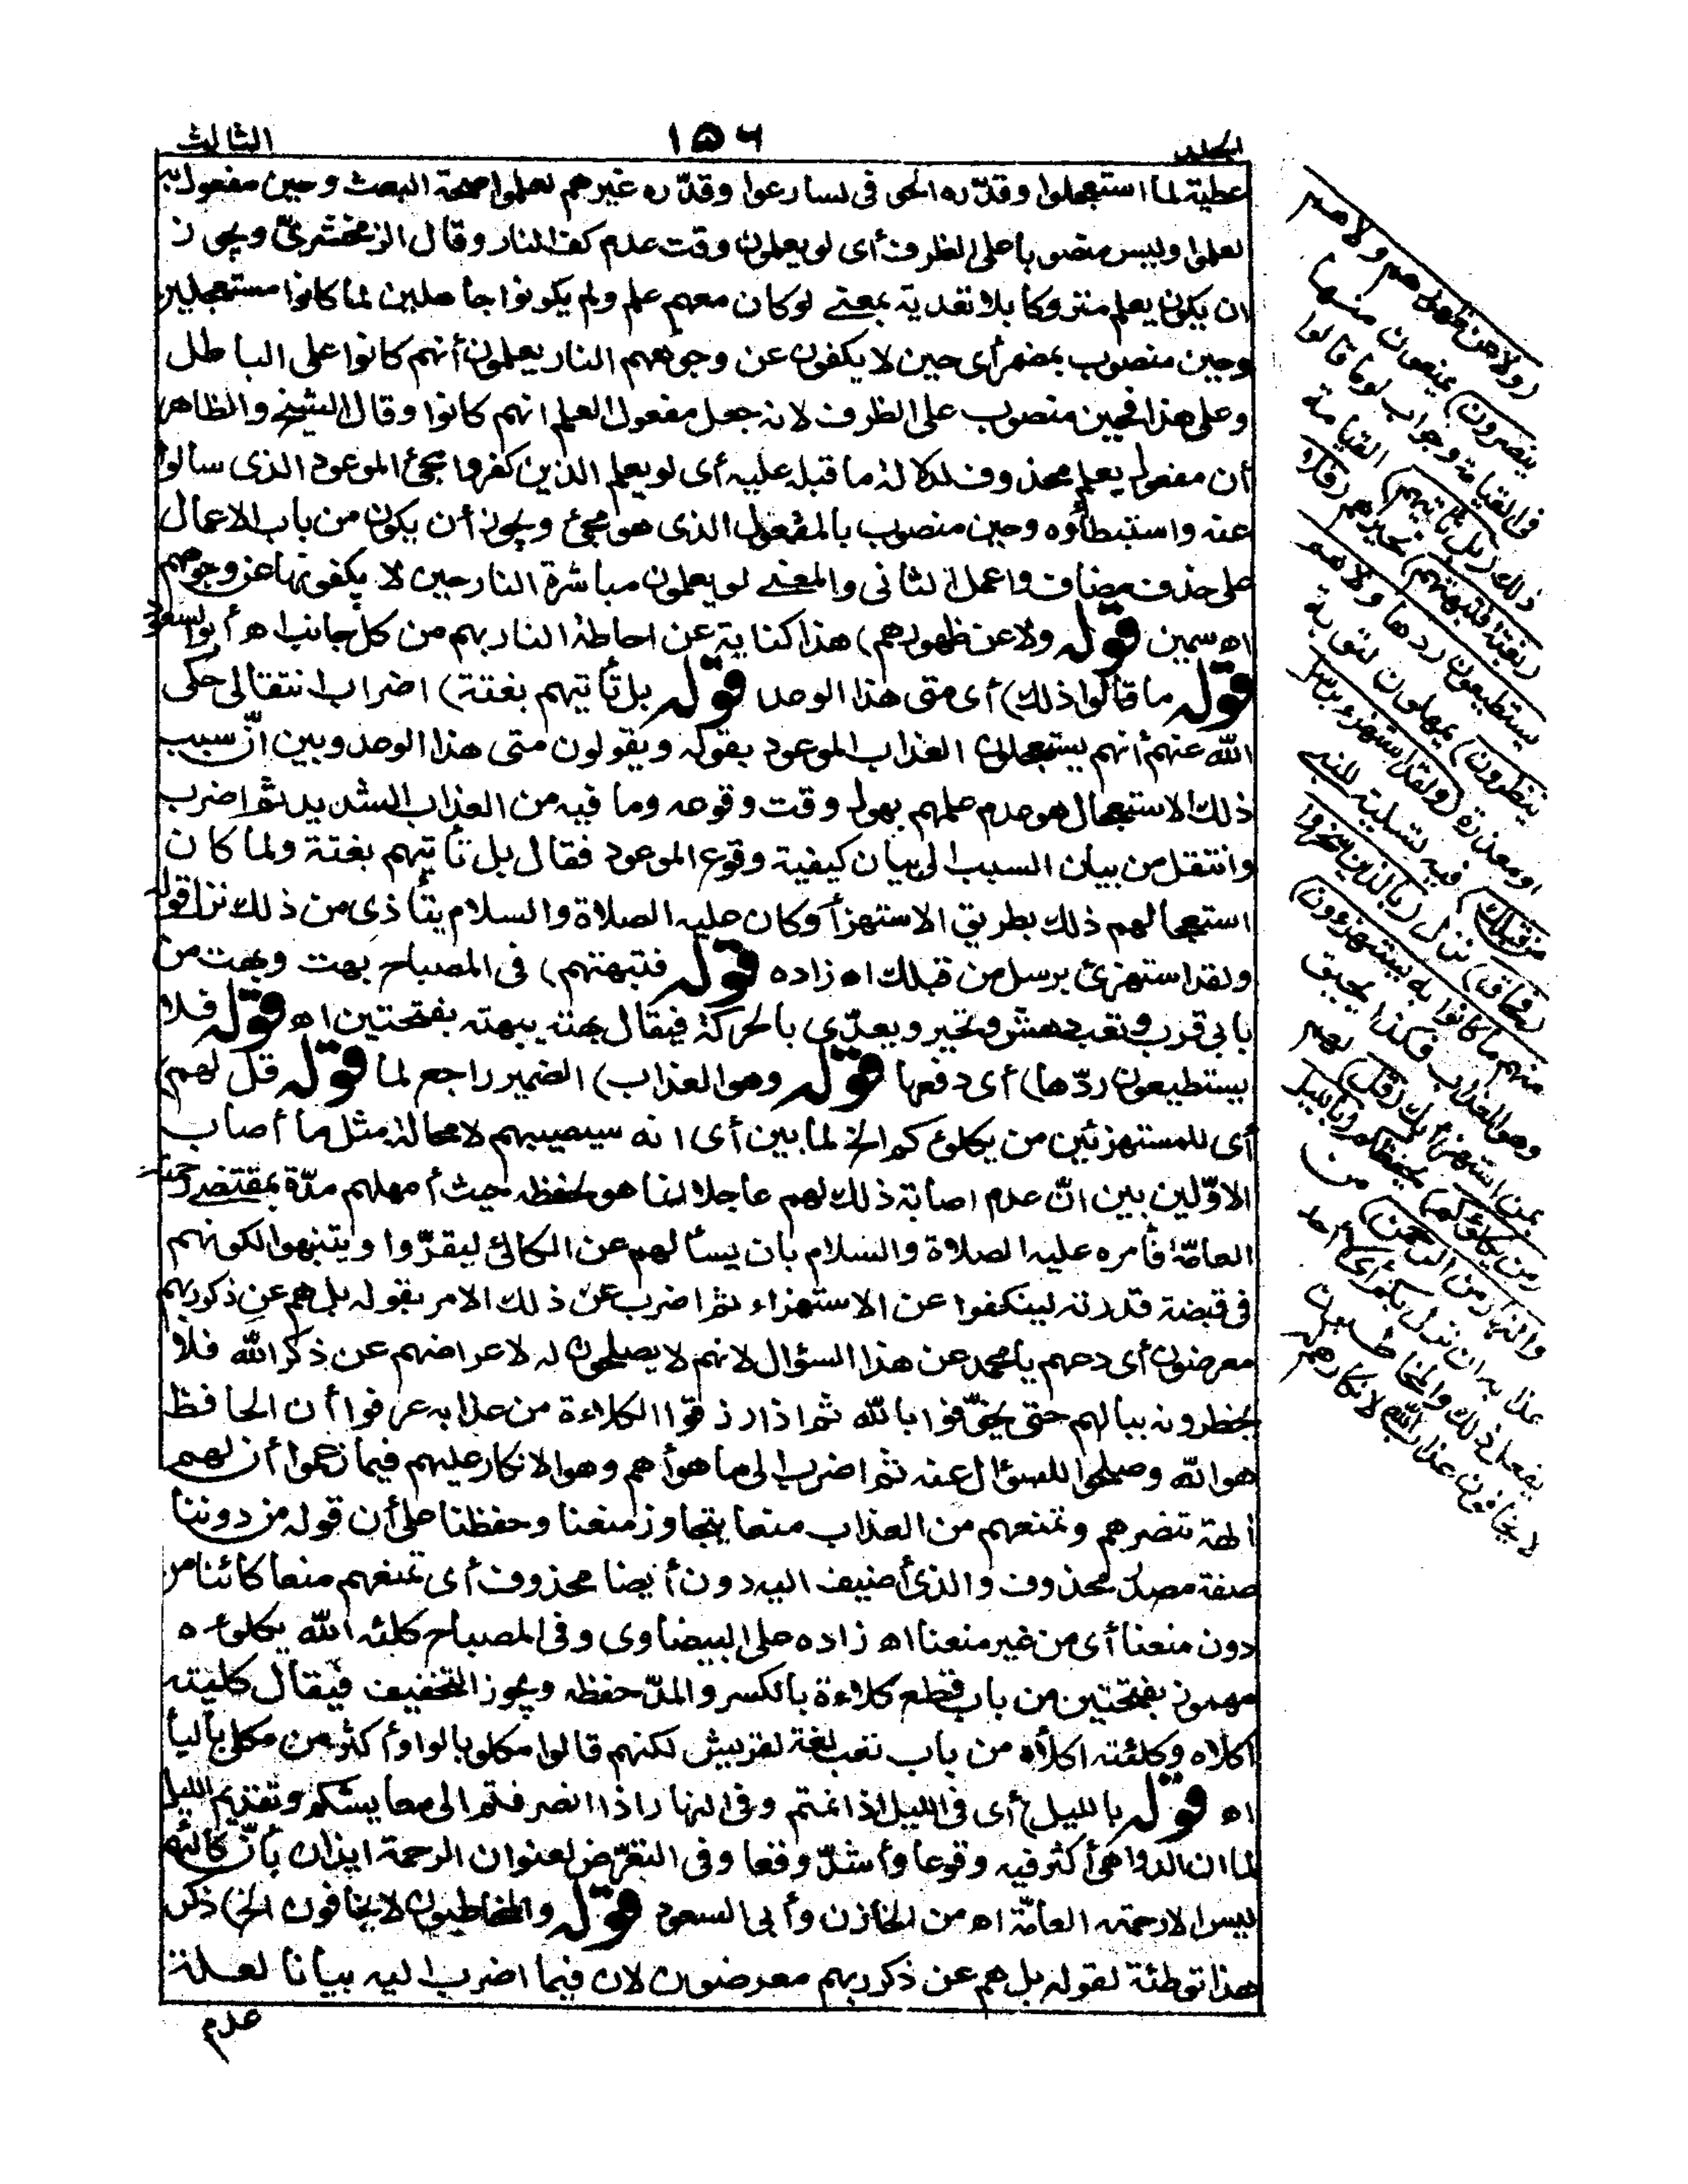 المجلد ١٥٦ الثالث
عطية لما استعجلوا وقدّره الحوفى لسارعوا وقدّره غيرهم لعلموا صحة البعث وحين مفعول به
لعلموا وليس منصوبا على الظرف أى لو يعلمون وقت عدم كف النار وقال الزمخشرىّ ويجوز
ان يكون يعلم متروكا بلا تعدية بمعنے لو كان معهم علم ولم يكونوا جاهلين لما كانوا مستعجلين
وحين منصوب بمضمر أى حين لا يكفون عن وجوههم النار يعلمون أنهم كانوا على الباطل
وعلى هذا فحين منصوب على الظرف لانه جعل مفعول العلم انهم كانوا وقال الشيخ والظاهر
أن مفعول يعلم محذوف لدلالة ما قبله عليه أى لو يعلم الذين كفروا مجئ الموعود الذى سألوا
عنه واستبطأوه وحين منصوب بالمفعول الذى هو مجئ ويجوز أن يكون من باب الاعمال
على حذف مضاف واعمل الثانى والمعنے لو يعلمون مباشرة النار حين لا يكفونها عن وجوههم
اه سمين قوله ولا عن ظهورهم) هذا كناية عن احاطة النار بهم من كل جانب اه أبو السعود
قوله ما قالوا ذلك) أى متى هذا الوعد قوله بل تأتيهم بغتة) اضراب انتقالى حكى
الله عنهم أنهم يستعجلون العذاب الموعود بقوله ويقولون متى هذا الوعد وبين انّ سبب
ذلك الاستعجال هو عدم علمهم بهول وقت وقوعه وما فيه من العذاب الشديد ثم اضرب
وانتقل من بيان السبب الى بيان كيفية وقوع الموعود فقال بل تأتيهم بغتة ولما كان
استعجالهم ذلك بطريق الاستهزأ وكان عليه الصلاة والسلام يتأذى من ذلك نزل قوله
ولقد استهزئ برسل من قبلك اه زاده قوله فتبهتهم) فى المصباح بهت وبهت من
بابى قرب وتعب دهش وتحير ويعدّى بالحركة فيقال بهته يبهته بفتحتين اه قوله فلا
يستطيعون ردّها) أى دفعها قوله وهو العذاب) الضمير راجع لما قوله قل لهم)
أى للمستهزئين من يكلؤكم الخ لما بين أى انه سيصيبهم لا محالة مثل ما أصاب
الاوّلين بين انّ عدم اصابة ذلك لهم عاجلا انما هو لحفظه حيث أمهلهم مدّة بمقتضے رحمته
العامّة فأمره عليه الصلاة والسلام بان يسألهم عن الكالئ ليقرّوا ويتنبهوا لكونهم
فى قبضة قدرته لينكفوا عن الاستهزاء ثم اضرب عن ذلك الامر بقوله بل هم عن ذكر ربهم
معرضون أى دعهم يا محمد عن هذا السؤال لانهم لا يصلحون له لاعراضهم عن ذكر الله فلا
يخطرونه ببالهم حتى يخوّفوا بالله ثم اذا رزقوا الكلاءة من عذابه عرفوا أن الحافظ
هو الله وصلحوا للسؤال عنه ثم اضرب الى ما هو أهم وهو الانكار عليهم فيما زعموا أن لهم
الهة تنصرهم وتمنعهم من العذاب منعا يتجاوز منعنا وحفظنا على أن قوله من دوننا
صفة مصدر محذوف والذى أضيف اليه دون أيضا محذوف أى تمنعهم منعا كائنا من
دون منعنا أى من غير منعنا اه زاده على البيضاوى وفى المصباح كلئه الله يكلؤه
مهموز بفتحتين من باب قطع كلاءة بالكسر والمدّ حفظه ويجوز التخفيف فيقال كليته
اكلاه وكلئته اكلأه من باب تعب لغة لقريش لكنهم قالوا مكلو بالواو أكثر من مكلى بالياء
اه قوله بالليل) أى فى الليل اذا نمتم وفى النهار اذا انصرفتم الى معايشكم وتقديم الليل
لما ان الدواهى أكثر فيه وقوعا وأشدّ وقعا وفى التعرّض لعنوان الرحمة ايذان بأنّ كالئهم
ليس الا رحمته العامّة اه من الخازن وأبى السعود قوله والمخاطبون لا يخافون الخ) ذكر
هذا توطئة لقوله بل هم عن ذكر ربهم معرضون لان فيما اضرب اليه بيانا لعلة
عدم
(ولا عن ظهورهم ولا هم
ينصرون) يمنعون منها
فى القيامة وجواب لو ما قالوا
ذلك (بل تأتيهم) القيامة
(بغتة فتبهتهم) تحيرهم (فلا
يستطيعون ردها ولا هم
ينظرون) يمهلون لتوبة
او معذرة (ولقد استهزئ برسل
من قبلك) فيه تسلية للنبے
(فحاق) نزل (بالذين سخروا
منهم ما كانوا به يستهزءون)
وهو العذاب فكذا يحيق
بمن استهزأ بك (قل) لهم
(من يكلؤكم) يحفظكم (بالليل
والنهار من الرحمن) من
عذابه ان نزل بكم أى لا احد
يفعل ذلك والمخاطبون
لا يخافون عذاب الله لانكارهم